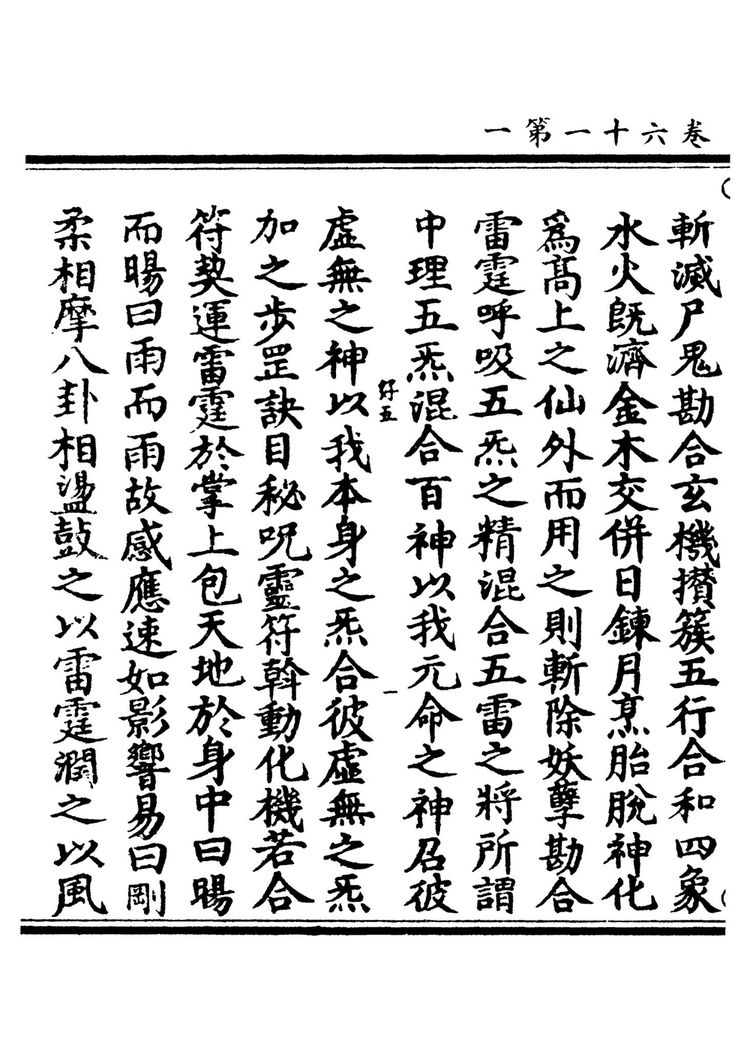 卷六十一第一
斬滅尸鬼勘合玄機攅簇五行合和四象
水火旣濟金木交併日鍊月烹胎脫神化
爲髙上之仙外而用之則斬除妖孽勘合
雷霆呼吸五炁之精混合五雷之將所謂
中理五炁混合百神以我元命之神召彼
好五
一
虛無之神以我本身之炁合彼虛無之炁
加之步罡訣目秘呪靈符斡動化機若合
符契運雷霆於掌上包天地於身中曰暘
而暘曰雨而雨故感應速如影響易曰剛
柔相摩八卦相盪鼓之以雷霆潤之以風